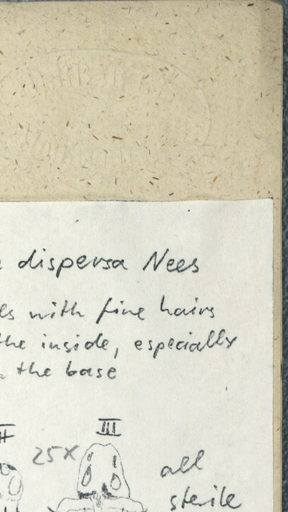 dispersa Nees
with fine hairs
the inside, especially
the base
III
25x
all
sterile